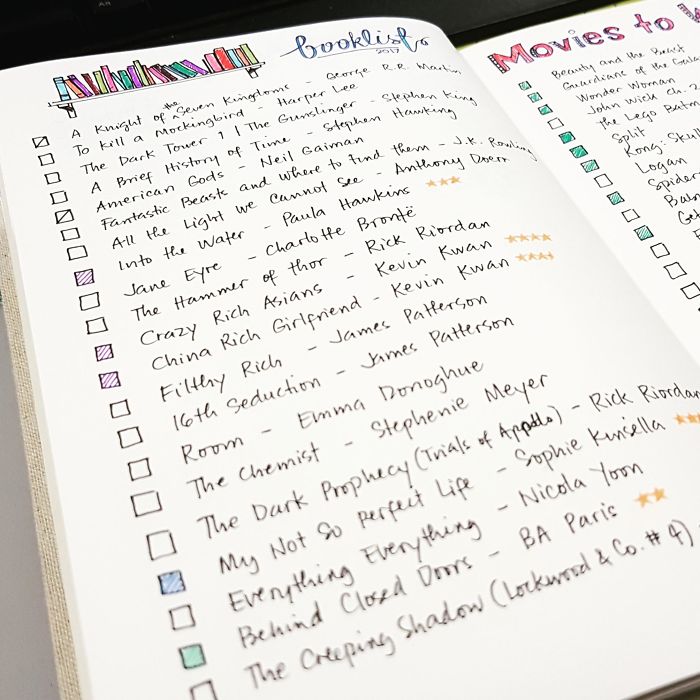 booklist
2017
A Knight of the Seven Kingdoms - George R.R. Martin
To kill a Mockingbird - Harper Lee
The Dark Tower 1 | The Gunslinger - Stephen King
A Brief History of Time - Stephen Hawking
American Gods - Neil Gaiman
Fantastic Beasts and where to find them - J.K. Rowling
All the Light we Cannot see - Anthony Doerr
Into the Water - Paula Hawkins
Jane Eyre - Charlotte Brontë
The Hammer of thor - Rick Riordan
Crazy Rich Asians - Kevin Kwan
China Rich Girlfriend - Kevin Kwan
Filthy Rich - James Patterson
16th Seduction - James Patterson
Room - Emma Donoghue
The Chemist - Stephenie Meyer
The Dark Prophecy (Trials of Appollo) - Rick Riordan
My Not So Perfect Life - Sophie Kinsella
Everything Everything - Nicola Yoon
Behind Closed Doors - BA Paris
The Creeping Shadow (Lockwood & Co. # 4)
Movies to W
Beauty and the Beast
Guardians of the Gala
Wonder Woman
John Wick Ch. 2
The Lego Bat
Split
Kong: Skul
Logan
Spider
Bab
Ge